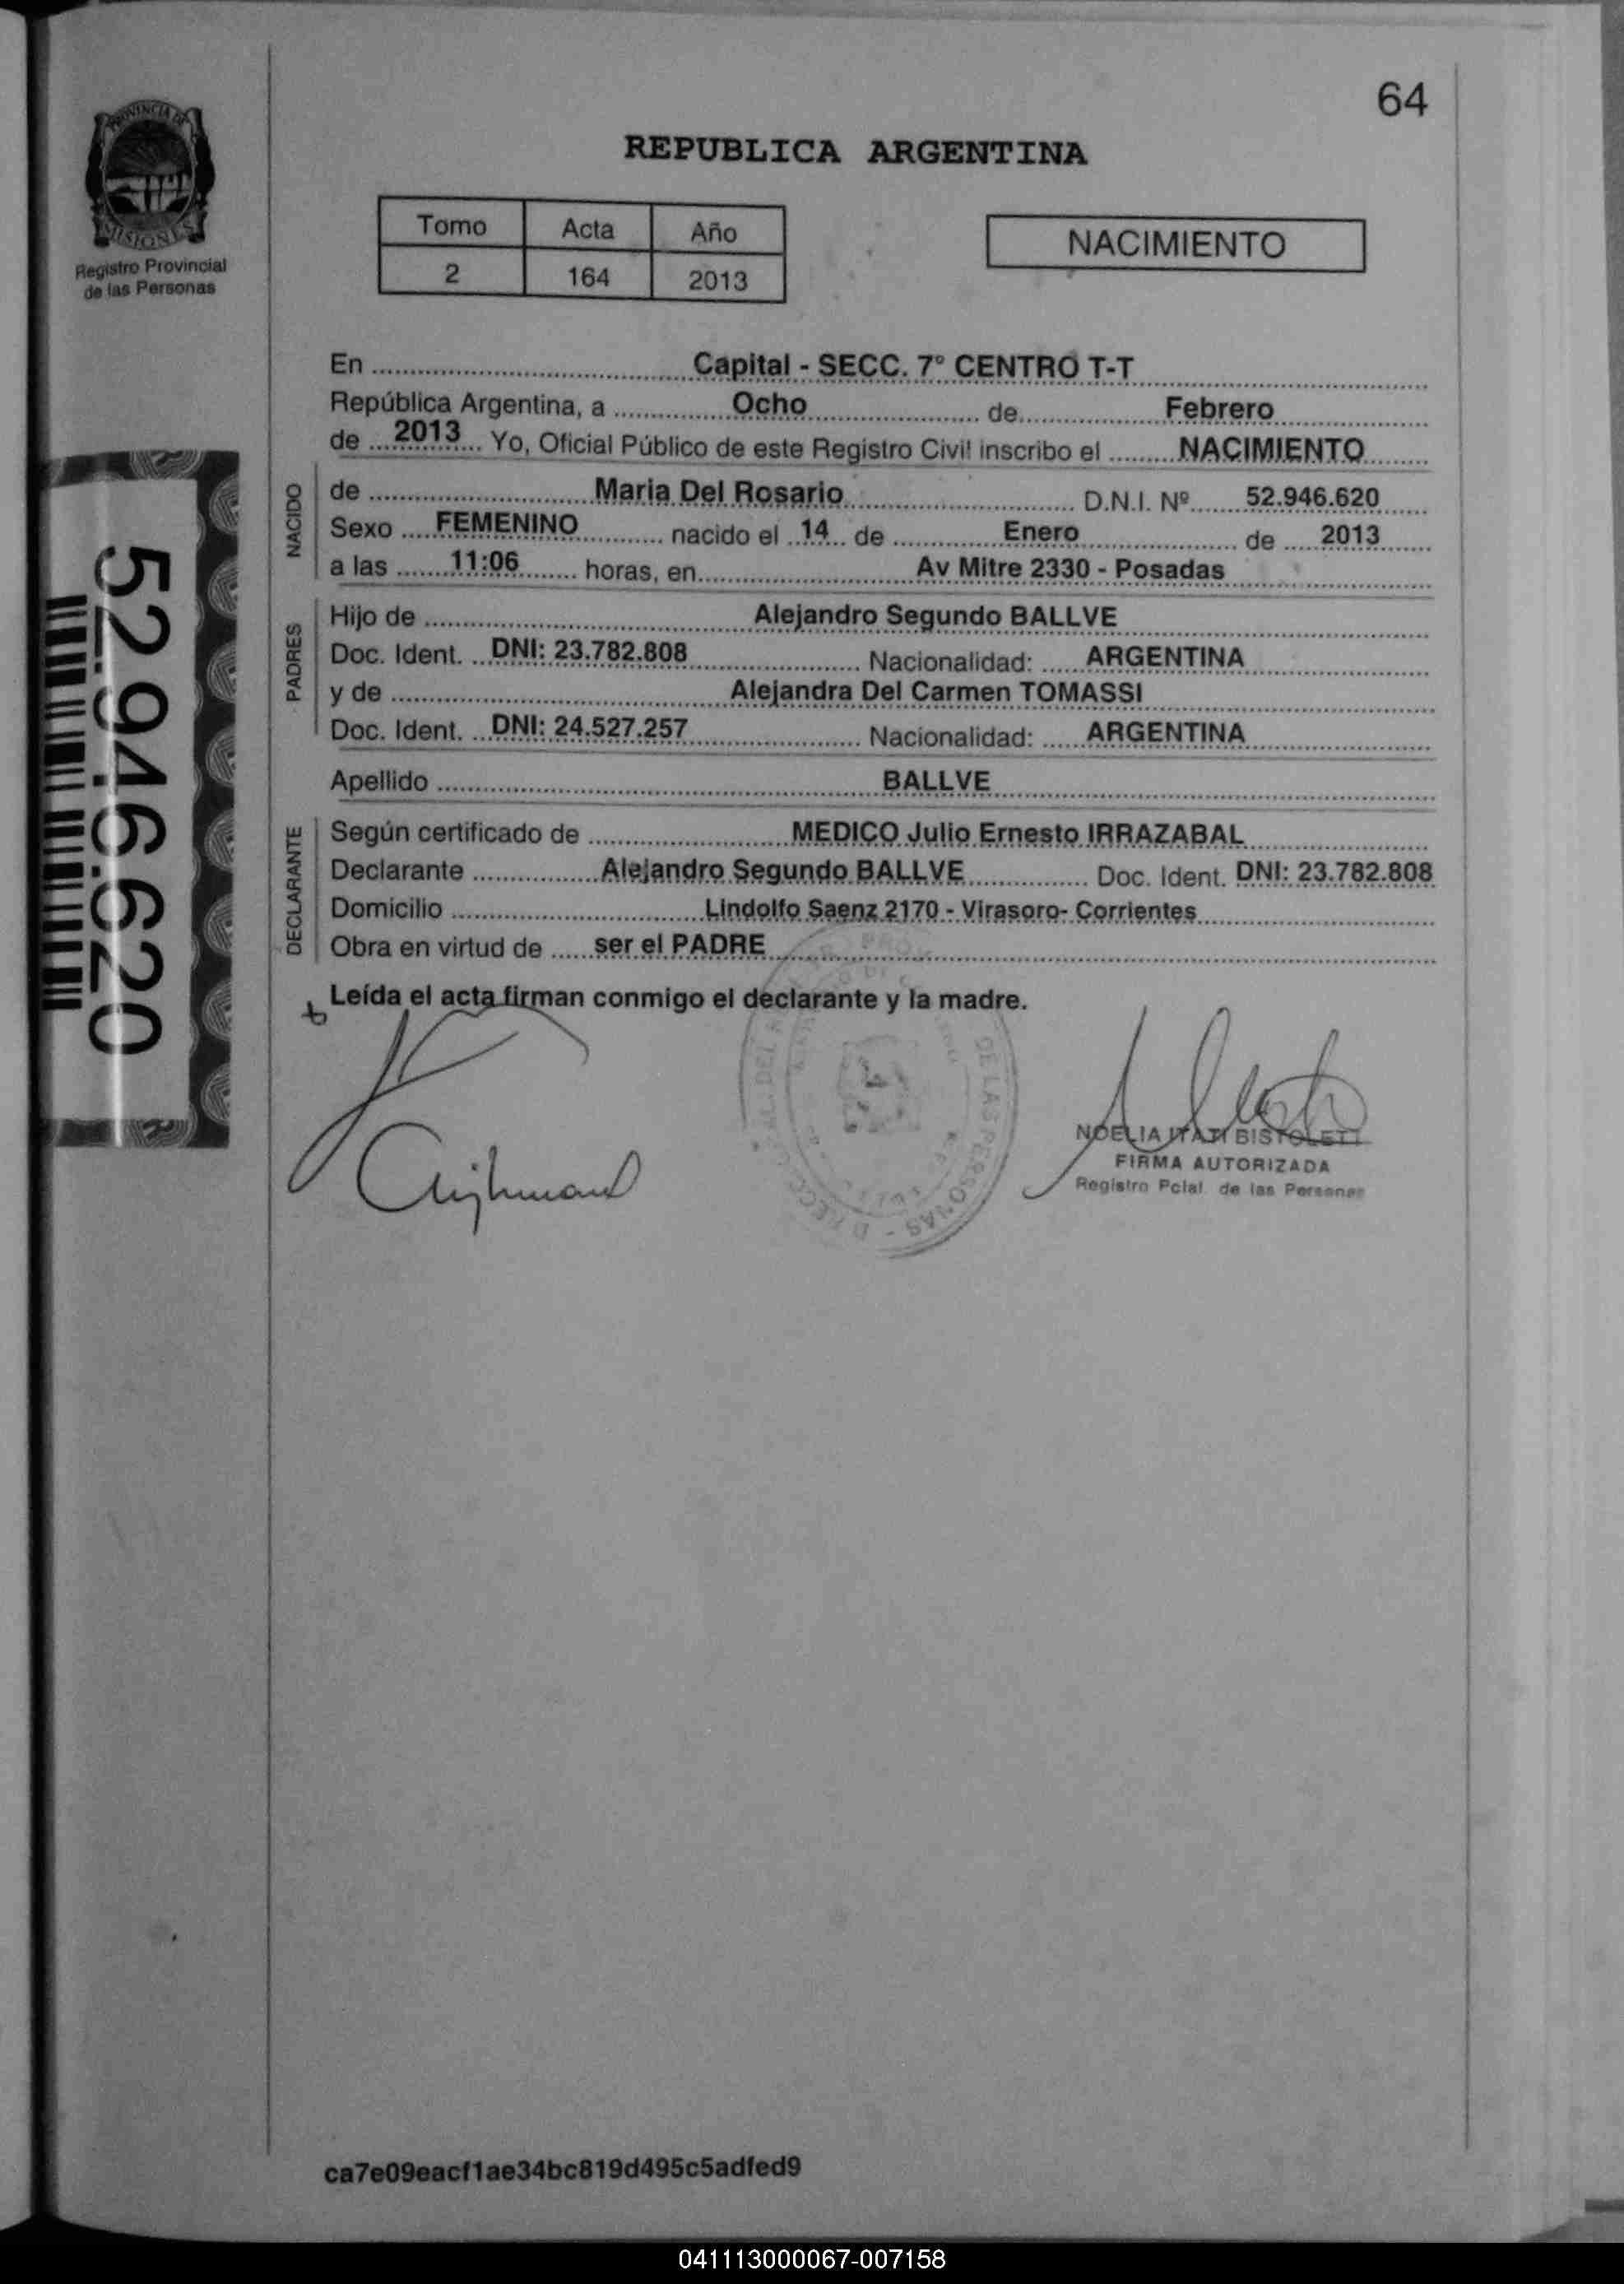 64
PROVINCIA DE
MISIONES
Registro Provincial
de las Personas
REPUBLICA ARGENTINA
Tomo Acta Año
2 164 2013
NACIMIENTO
En Capital - SECC. 7° CENTRO T-T
República Argentina, a Ocho de Febrero
de 2013 Yo, Oficial Público de este Registro Civil inscribo el NACIMIENTO
NACIDO
de Maria Del Rosario D.N.I. Nº 52.946.620
Sexo FEMENINO nacido el 14 de Enero de 2013
a las 11:06 horas, en Av Mitre 2330 - Posadas
PADRES
Hijo de Alejandro Segundo BALLVE
Doc. Ident. DNI: 23.782.808 Nacionalidad: ARGENTINA
y de Alejandra Del Carmen TOMASSI
Doc. Ident. DNI: 24.527.257 Nacionalidad: ARGENTINA
Apellido BALLVE
DECLARANTE
Según certificado de MEDICO Julio Ernesto IRRAZABAL
Declarante Alejandro Segundo BALLVE Doc. Ident. DNI: 23.782.808
Domicilio Lindolfo Saenz 2170 - Virasoro- Corrientes
Obra en virtud de ser el PADRE
Leída el acta firman conmigo el declarante y la madre.
52.946.620
DE LAS PERSONAS
NOELIA ITATI BISTOLETTI
FIRMA AUTORIZADA
Registro Pcial. de las Personas
ca7e09eacf1ae34bc819d495c5adfed9
041113000067-007158